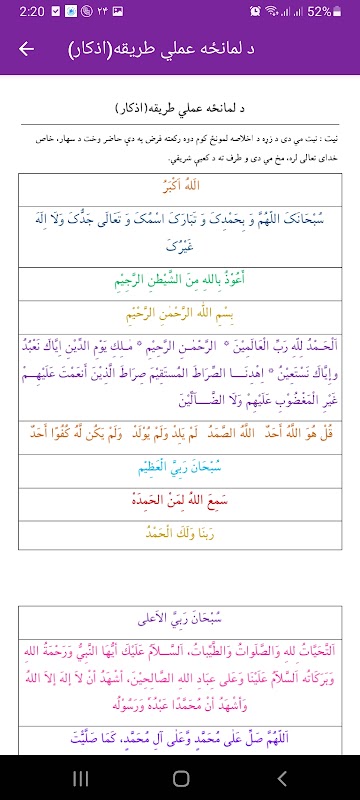 2:20
۲۴
52%
د لمانځه عملي طریقه(اذکار)
د لمانځه عملي طریقه(اذکار)
نیت : نیت مې دی د زړه د اخلاصه لمونځ کوم دوه رکعته فرض په دې حاضر وخت د سهار، خاص
خدای تعالی لره، مخ مې دی و طرف ته د کعبې شریفې.
اَللهُ اَکْبَرُ
سُبْحَانَکَ اللّٰهُمَّ وَ بِحَمْدِکَ وَ تَبَارَکَ اسْمُکَ وَ تَعَالَى جَدُّکَ وَلَا اِلَهَ
غَيْرُکَ
أَعُوْذُ بِاللهِ مِنَ الشَّيْطٰنِ الرَّجِيْمِ
بِسْمِ اللّٰهِ الرَّحْمٰنِ الرَّحْيْمِ
اَلْحَـمْدُ لِلّٰهِ رَبِّ الْعَالَمِيْنَ * الرَّحْمٰـنِ الرَّحِيْمِ * مَـلِكِ يَوْمِ الدِّيْنِ اِيَّاكَ نَعْبُدُ
وإِيَّاكَ نَسْتَعِيْنُ * اِهْدِنَــا الصِّرَاطَ المُستَقِيْمَ صِرَاطَ الَّذِيْنَ أَنعَمْتَ عَلَيْهِــمْ
غَيْرِ الْمَغْضُوْبِ عَلَيْهِمْ وَلَا الضَّــآلِّيْنَ
قُلْ هُوَ اللَّهُ أَحَدٌ اللَّهُ الصَّمَدُ لَمْ يَلِدْ وَلَمْ يُوْلَدْ وَلَمْ يَكُن لَّهُ كُفُوًا أَحَدٌ
سُبْحَانَ رَبِيَّ الْعَظِيْمِ
سَمِعَ اللهُ لِمَنْ الحَمِدَهْ
رَبَنَا وَلَكَ الْحَمْدُ
سُبْحَانَ رَبِيَّ الاَعلى
اَلتَّحِيَّاتُ لِلهِ وَالصَّلَواتُ وَالطَّيِّباتُ، اَلسَّــلاَمُ عَلَيْكَ أَيُّهَا النَّبِيُّ وَرَحْمَةُ اللهِ
وَبَرَكَاتُه اَلسَّلاَمُ عَلَيْنَا وَعَلى عِبَادِ اللهِ الصَّالِحِيْنَ، اَشْهَدُ اَنْ لاَ إلهَ إلاَ اللهُ
وَأَشْهَدُ اَنْ مُحَمَّدًا عَبْدُهُ وَرَسُوْلُه
اَللّهُمَّ صَلِّ عَلَى مُحَمَّدٍ وَّعَلَى آلِ مُحَمَّدٍ، كَمَا صَلَّيْتَ